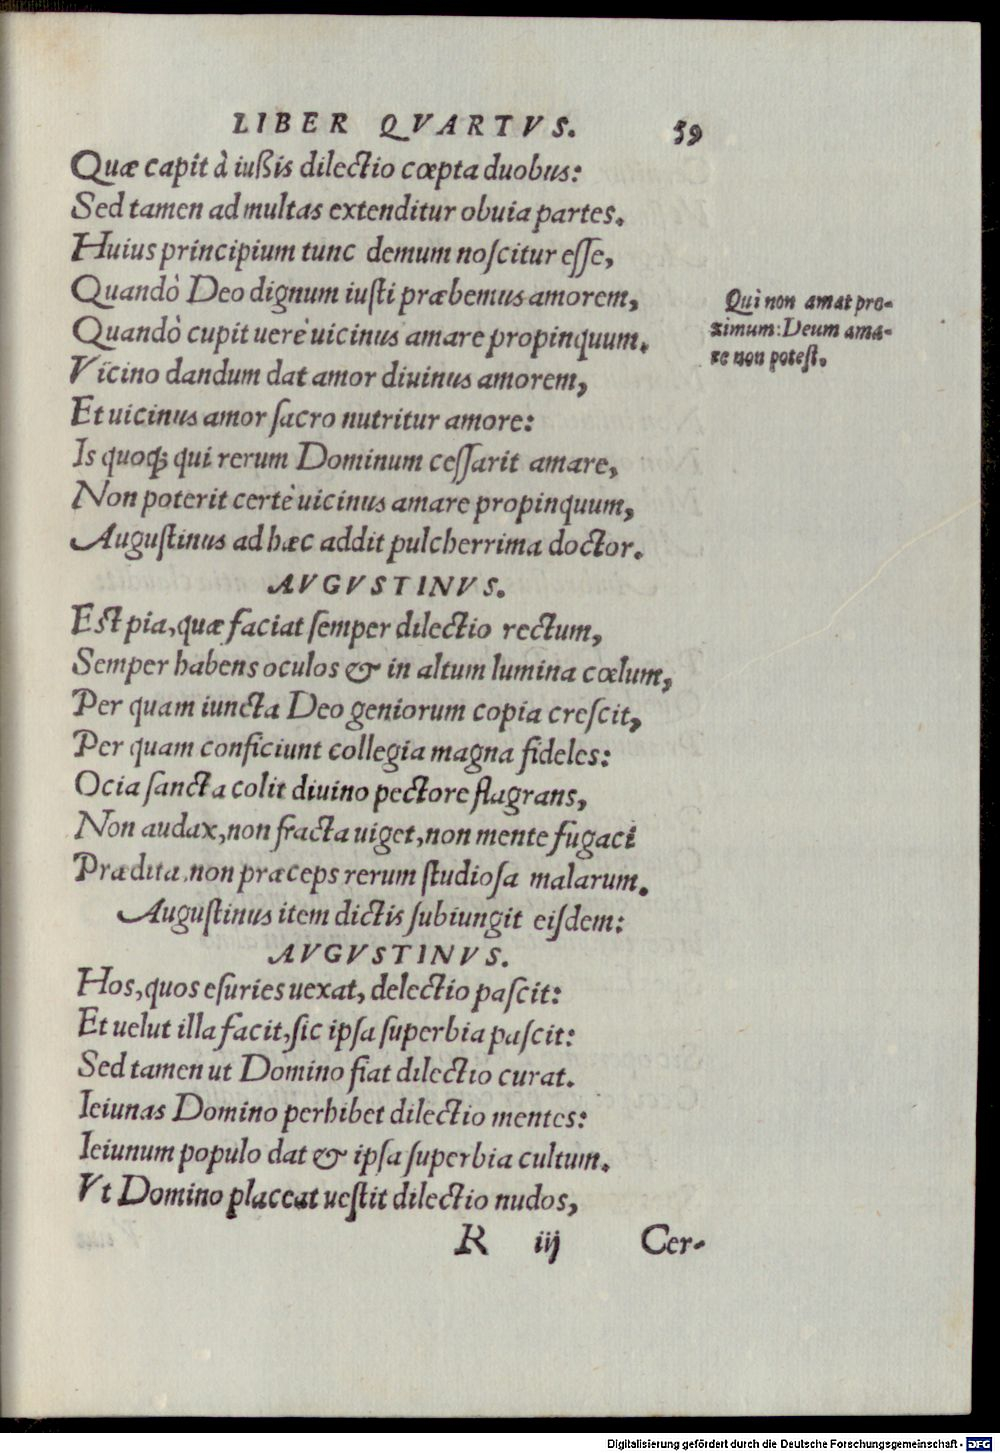 LIBER QVARTVS. 59
Quæ capit à iußis dilectio cœpta duobus:
Sed tamen ad multas extenditur obuia partes.
Huius principium tunc demum noſcitur eſſe,
Quandò Deo dignum iuſti præbemus amorem,
Quandò cupit uerè uicinus amare propinquum.
Qui non amat pro-
ximum: Deum ama-
re non poteſt.
Vicino dandum dat amor diuinus amorem,
Et uicinus amor ſacro nutritur amore:
Is quoq; qui rerum Dominum ceſſarit amare,
Non poterit certè uicinus amare propinquum,
Auguſtinus ad hæc addit pulcherrima doctor.
AVGVSTINVS.
Est pia, quæ faciat ſemper dilectio rectum,
Semper habens oculos & in altum lumina cœlum,
Per quam iuncta Deo geniorum copia creſcit,
Per quam conficiunt collegia magna fideles:
Ocia ſancta colit diuino pectore flagrans,
Non audax, non fracta uiget, non mente fugaci
Prædita, non præceps rerum ſtudioſa malarum.
Auguſtinus item dictis ſubiungit eiſdem:
AVGVSTINVS.
Hos, quos eſuries uexat, delectio paſcit:
Et uelut illa facit, ſic ipſa ſuperbia paſcit:
Sed tamen ut Domino fiat dilectio curat.
Ieiunas Domino perhibet dilectio mentes:
Ieiunum populo dat & ipſa ſuperbia cultum.
Vt Domino placeat ueſtit dilectio nudos,
R iij Cer-
Digitalisierung gefördert durch die Deutsche Forschungsgemeinschaft - DFG